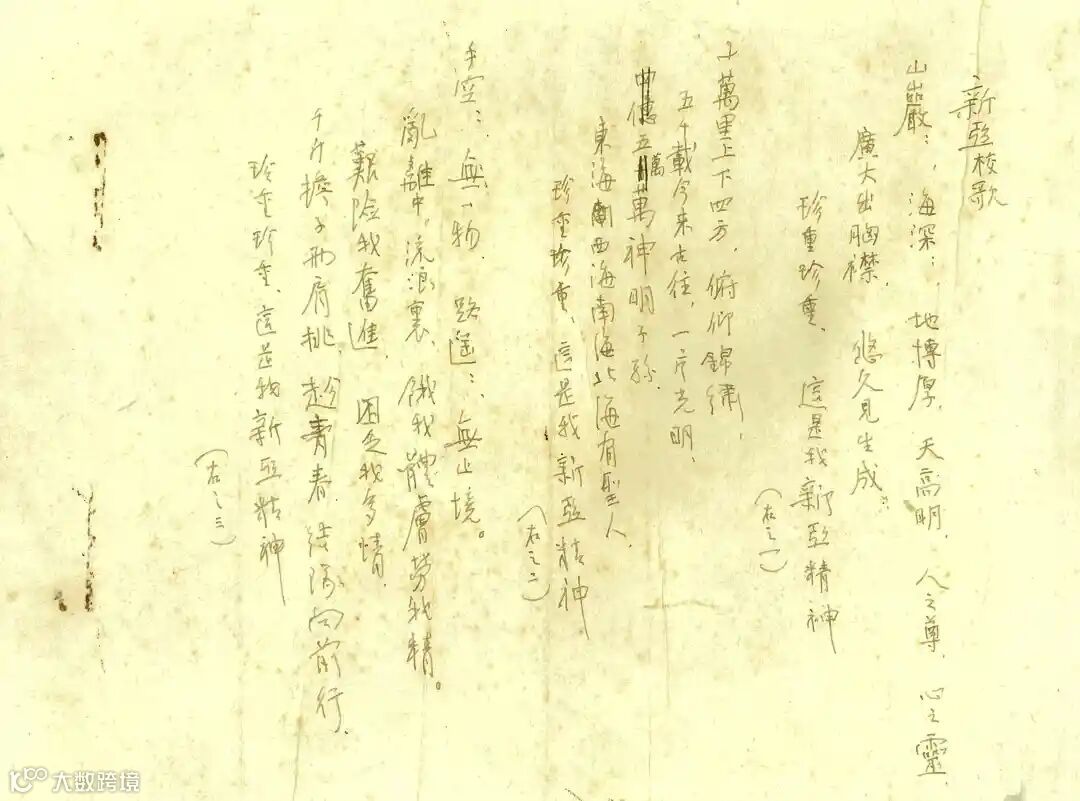 新亞校歌
山巖：，海深：，地博厚，天高明，人之尊，心之靈，
廣大出胸襟，悠久見生成。
珍重珍重，這是我新亞精神
（右之一）
十萬里上下四方，俯仰錦繡，
五千載今來古往，一片光明，
五萬萬神明子孫，
東海西海南海北海有聖人，
珍重珍重，這是我新亞精神
（右之二）
手空：，無一物，路遥：，無止境。
亂離中，流浪裏，餓我體膚勞我精。
艱險我奮進，困乏我多情，
千斤擔子兩肩挑，趁青春，結隊向前行，
珍重珍重，這是我新亞精神
（右之三）
大数跨境